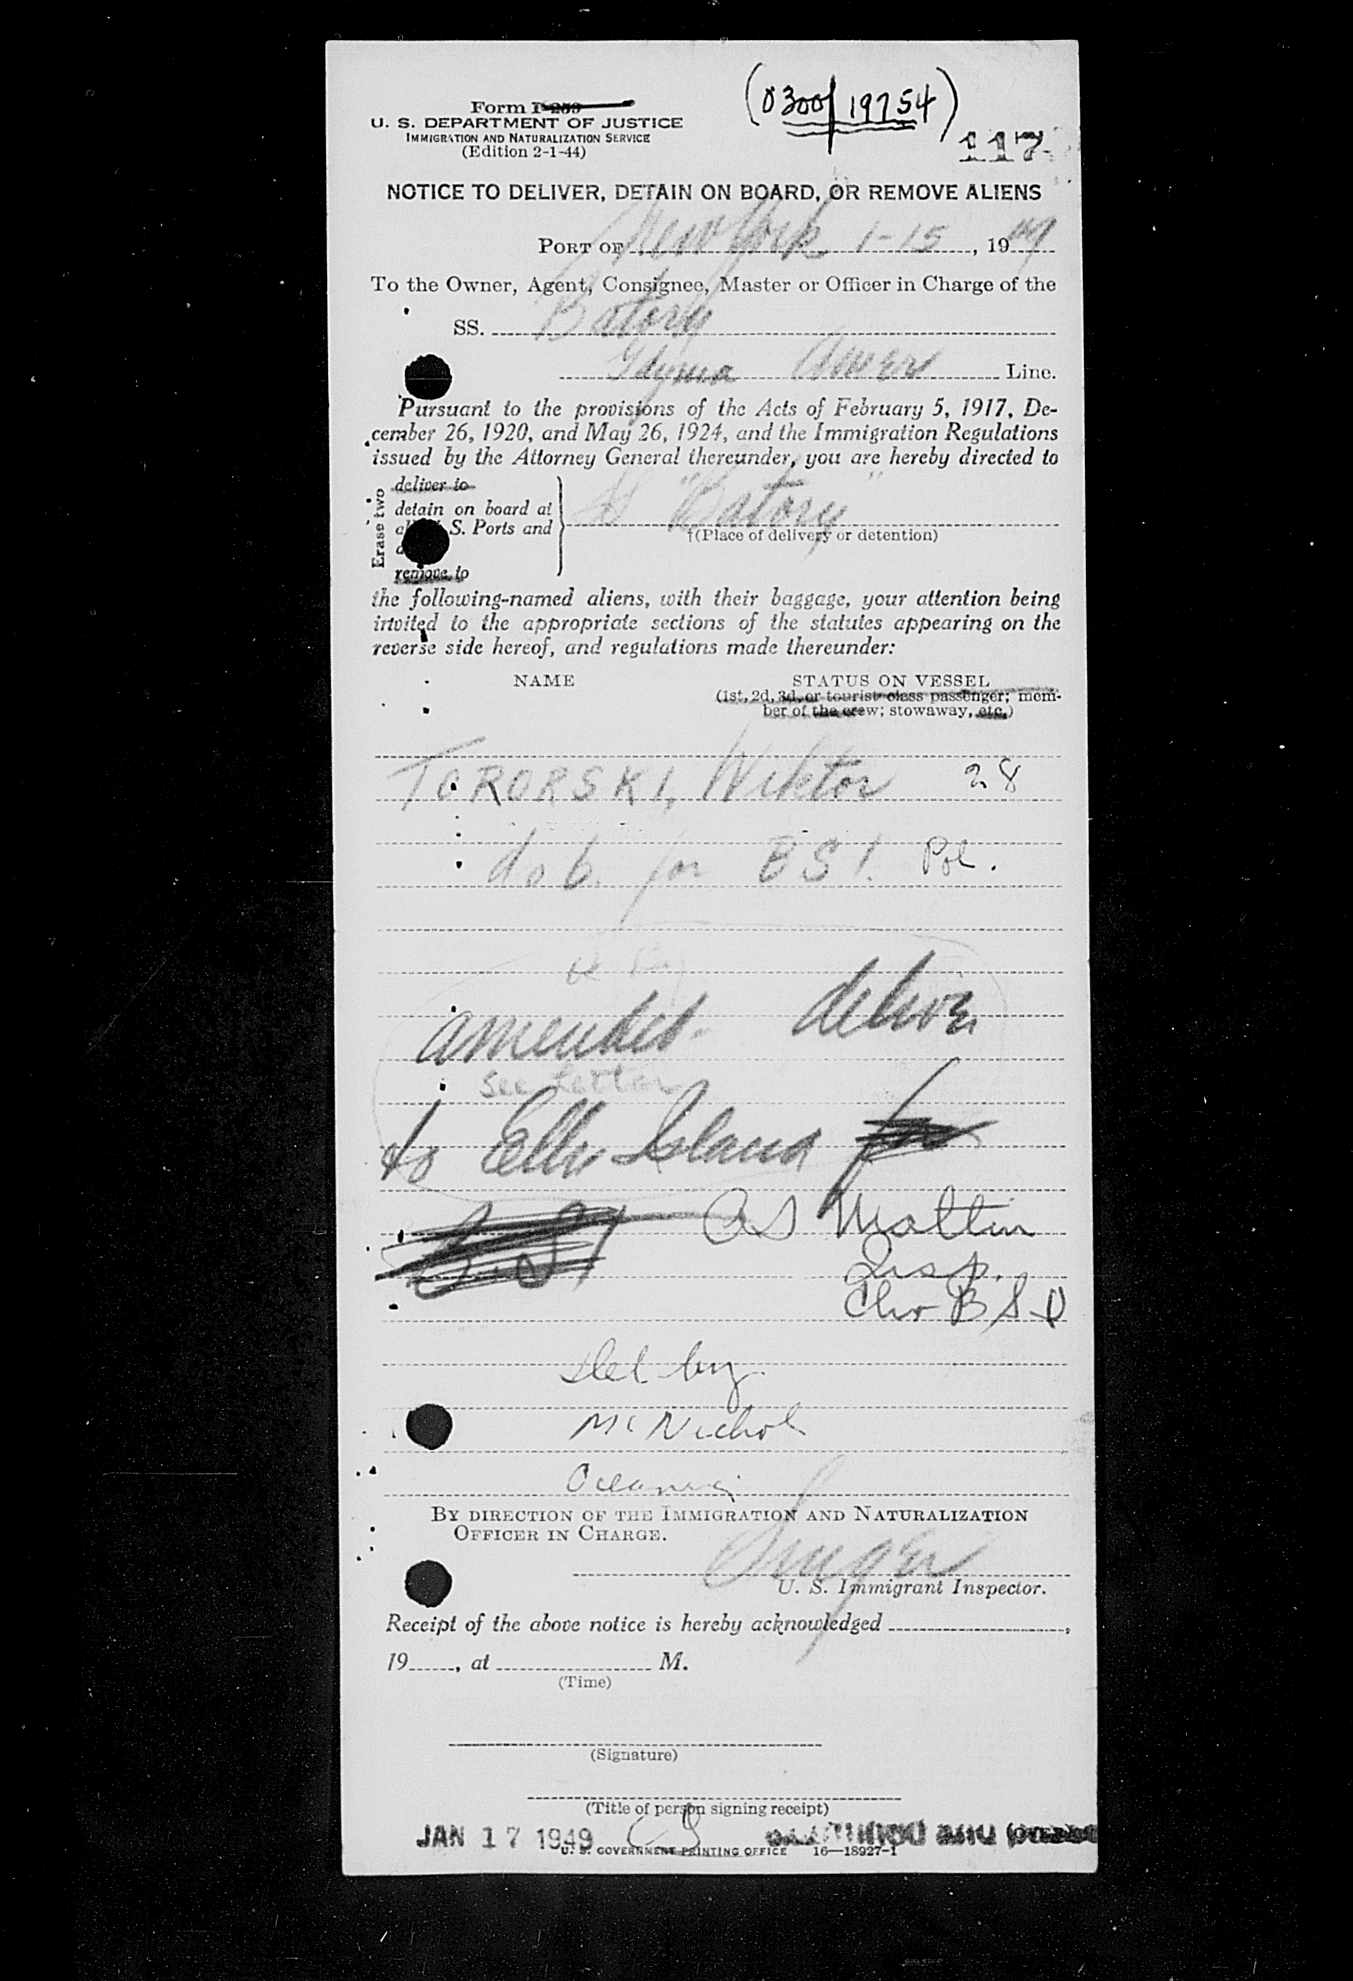 (0300/19754)
Form I-259
U. S. DEPARTMENT OF JUSTICE
IMMIGRATION AND NATURALIZATION SERVICE
(Edition 2-1-44)
117
NOTICE TO DELIVER, DETAIN ON BOARD, OR REMOVE ALIENS
PORT OF New York 1-15, 1949
To the Owner, Agent, Consignee, Master or Officer in Charge of the
SS. Batory
Gdynia Amer Line.
Pursuant to the provisions of the Acts of February 5, 1917, De-
cember 26, 1920, and May 26, 1924, and the Immigration Regulations
issued by the Attorney General thereunder, you are hereby directed to
Erase two
deliver to
detain on board at
S. Ports and
remove to
"Batory"
†(Place of delivery or detention)
the following-named aliens, with their baggage, your attention being
invited to the appropriate sections of the statutes appearing on the
reverse side hereof, and regulations made thereunder:
NAME STATUS ON VESSEL
(1st, 2d, 3d, or tourist class passenger; mem-
ber of the crew; stowaway, etc.)
TORORSKI, Wiktor 28
dob. for BSI. Pol.
amended - deliver
See Letter
to Ellis Island for
BSI
Mattin
Insp.
BSD
Del by
McNichol
Oceanic
BY DIRECTION OF THE IMMIGRATION AND NATURALIZATION
OFFICER IN CHARGE.
Singer
U. S. Immigrant Inspector.
Receipt of the above notice is hereby acknowledged ,
19 , at M.
(Time)
(Signature)
(Title of person signing receipt)
JAN 17 1949
U. S. GOVERNMENT PRINTING OFFICE 16—18927-1